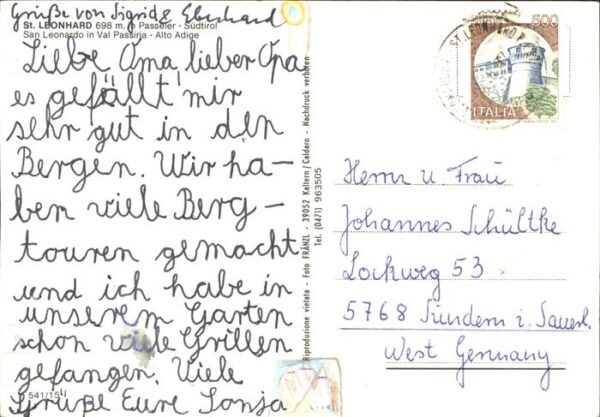 Grüße von Sigrid & Eberhard
ST. LEONHARD 698 m. in Passeier - Südtirol
San Leonardo in Val Passiria - Alto Adige
Liebe Oma, lieber Opa
es gefällt mir
sehr gut in den
Bergen. Wir ha-
ben viele Berg-
touren gemacht
und ich habe in
unserem Garten
schon viele Grillen
gefangen. Viele
Grüße Eure Sonja
541/15
Riproduzione vietata - Foto FRÄNZL - 39052 Kaltern/Caldaro - Nachdruck verboten
Tel. (0471) 963505
500
ITALIA
Herrn u Frau
Johannes Schültke
Lockweg 53
5768 Sundern i. Sauerl.
West Germany